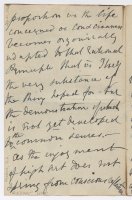 proportion as the life
concerned as conditioned
becomes organically
adapted to that rational
principle that is itself
the very substance of
the thing hoped for but
the demonstration of which
is not yet developed
to common sense. —
As the enjoyment
of high art does not
spring from conscious